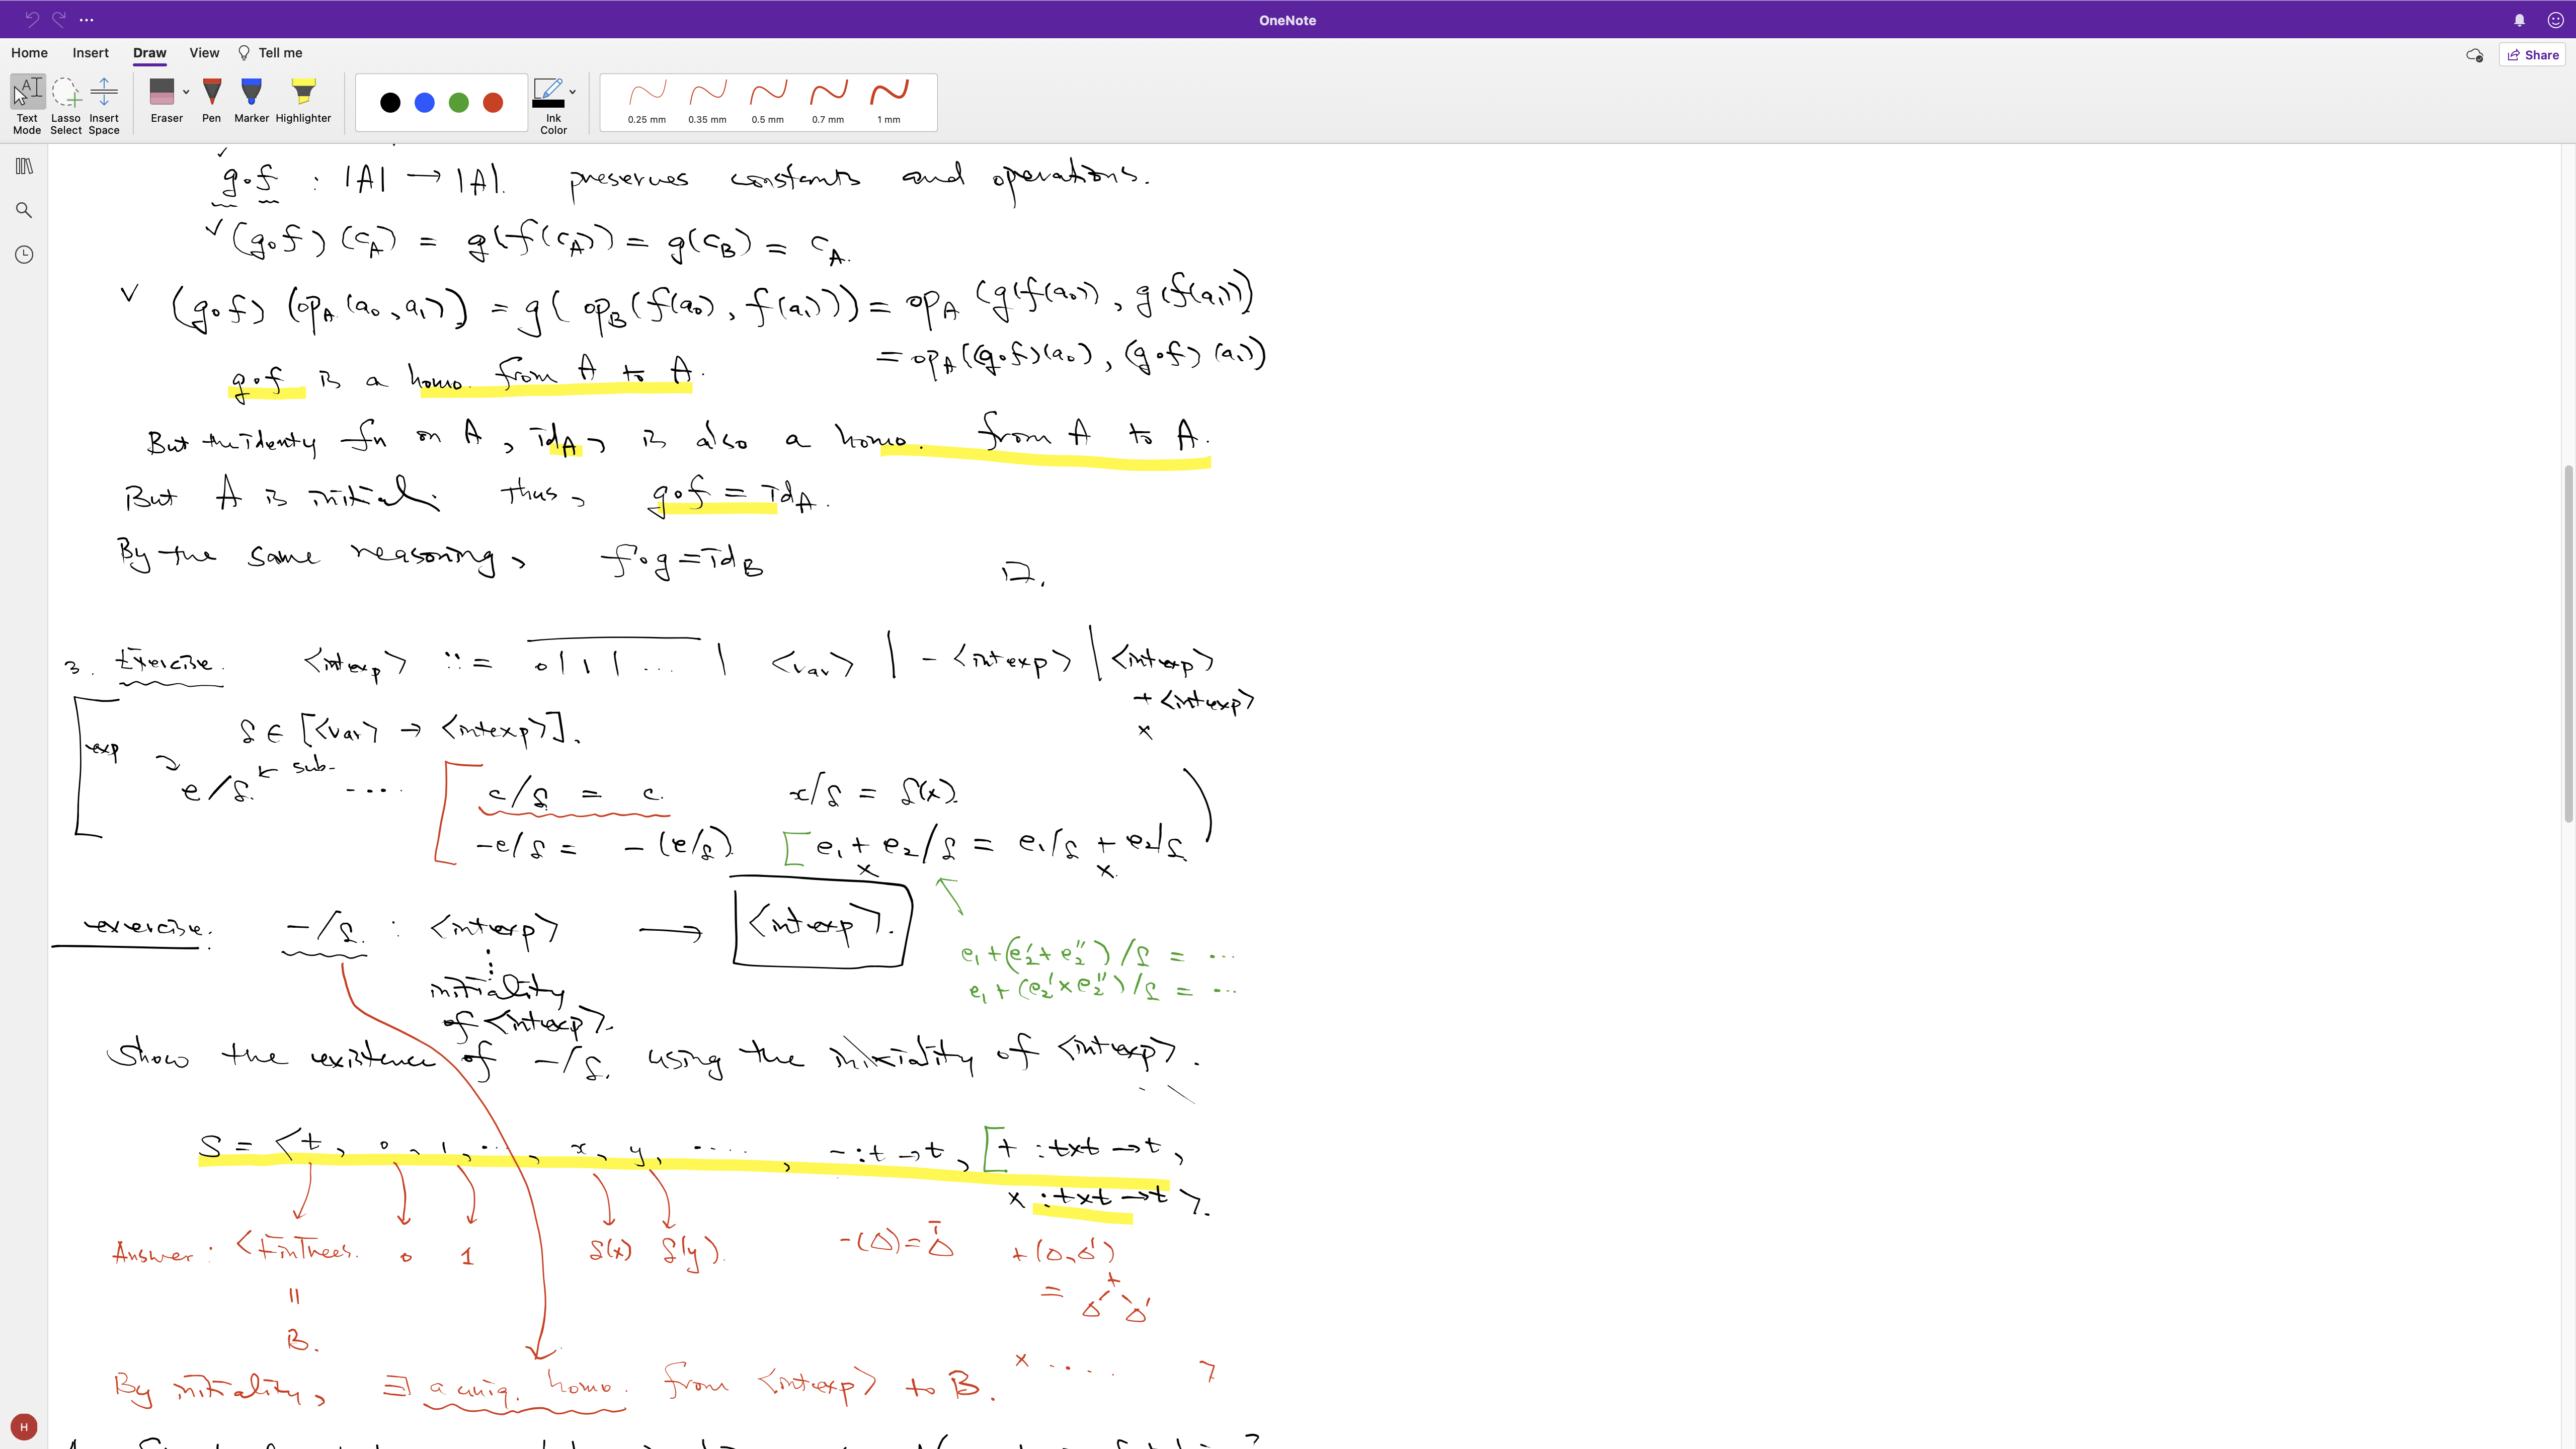 OneNote
Home Insert Draw View Tell me
Share
Text Mode
Lasso Select
Insert Space
Eraser
Pen
Marker
Highlighter
Ink Color
0.25 mm 0.35 mm 0.5 mm 0.7 mm 1 mm
g∘f : |A| → |A|. preserves constants and operations.
✓ (g∘f)(c_A) = g(f(c_A)) = g(c_B) = c_A.
✓ (g∘f)(op_A(a₀, a₁)) = g(op_B(f(a₀), f(a₁))) = op_A(g(f(a₀)), g(f(a₁)))
= op_A((g∘f)(a₀), (g∘f)(a₁))
g∘f is a homo. from A to A.
But the identy fn on A, id_A, is also a homo. from A to A.
But A is initial. Thus, g∘f = id_A.
By the same reasoning, f∘g = id_B □.
3. Exercise. <intexp> ::= 0 | 1 | ... | <var> | - <intexp> | <intexp>
+ <intexp>
×
δ ∈ [<var> → <intexp>].
exp
e/δ. ← sub.
.... c/δ = c. x/δ = δ(x).
-e/δ = -(e/δ). [ e₁ + e₂/δ = e₁/δ + e₂/δ
× ×.
exercise: -/δ. : <intexp> → <intexp>.
e₁+(e₂'+e₂'')/δ = ...
e₁+(e₂'×e₂'')/δ = ...
initiality
of <intexp>.
Show the existence of -/δ. using the initiality of <intexp>.
S = <t, 0, 1, ..., x, y, ...., - : t → t, [+ : t×t → t,
× : t×t → t>.
Answer : <FinTrees. 0 1 δ(x) δ(y). -(△) = △ + (△, △')
= + △ △'
||
B.
× ....  >
By initiality, ∃ a uniq. homo. from <intexp> to B.
H